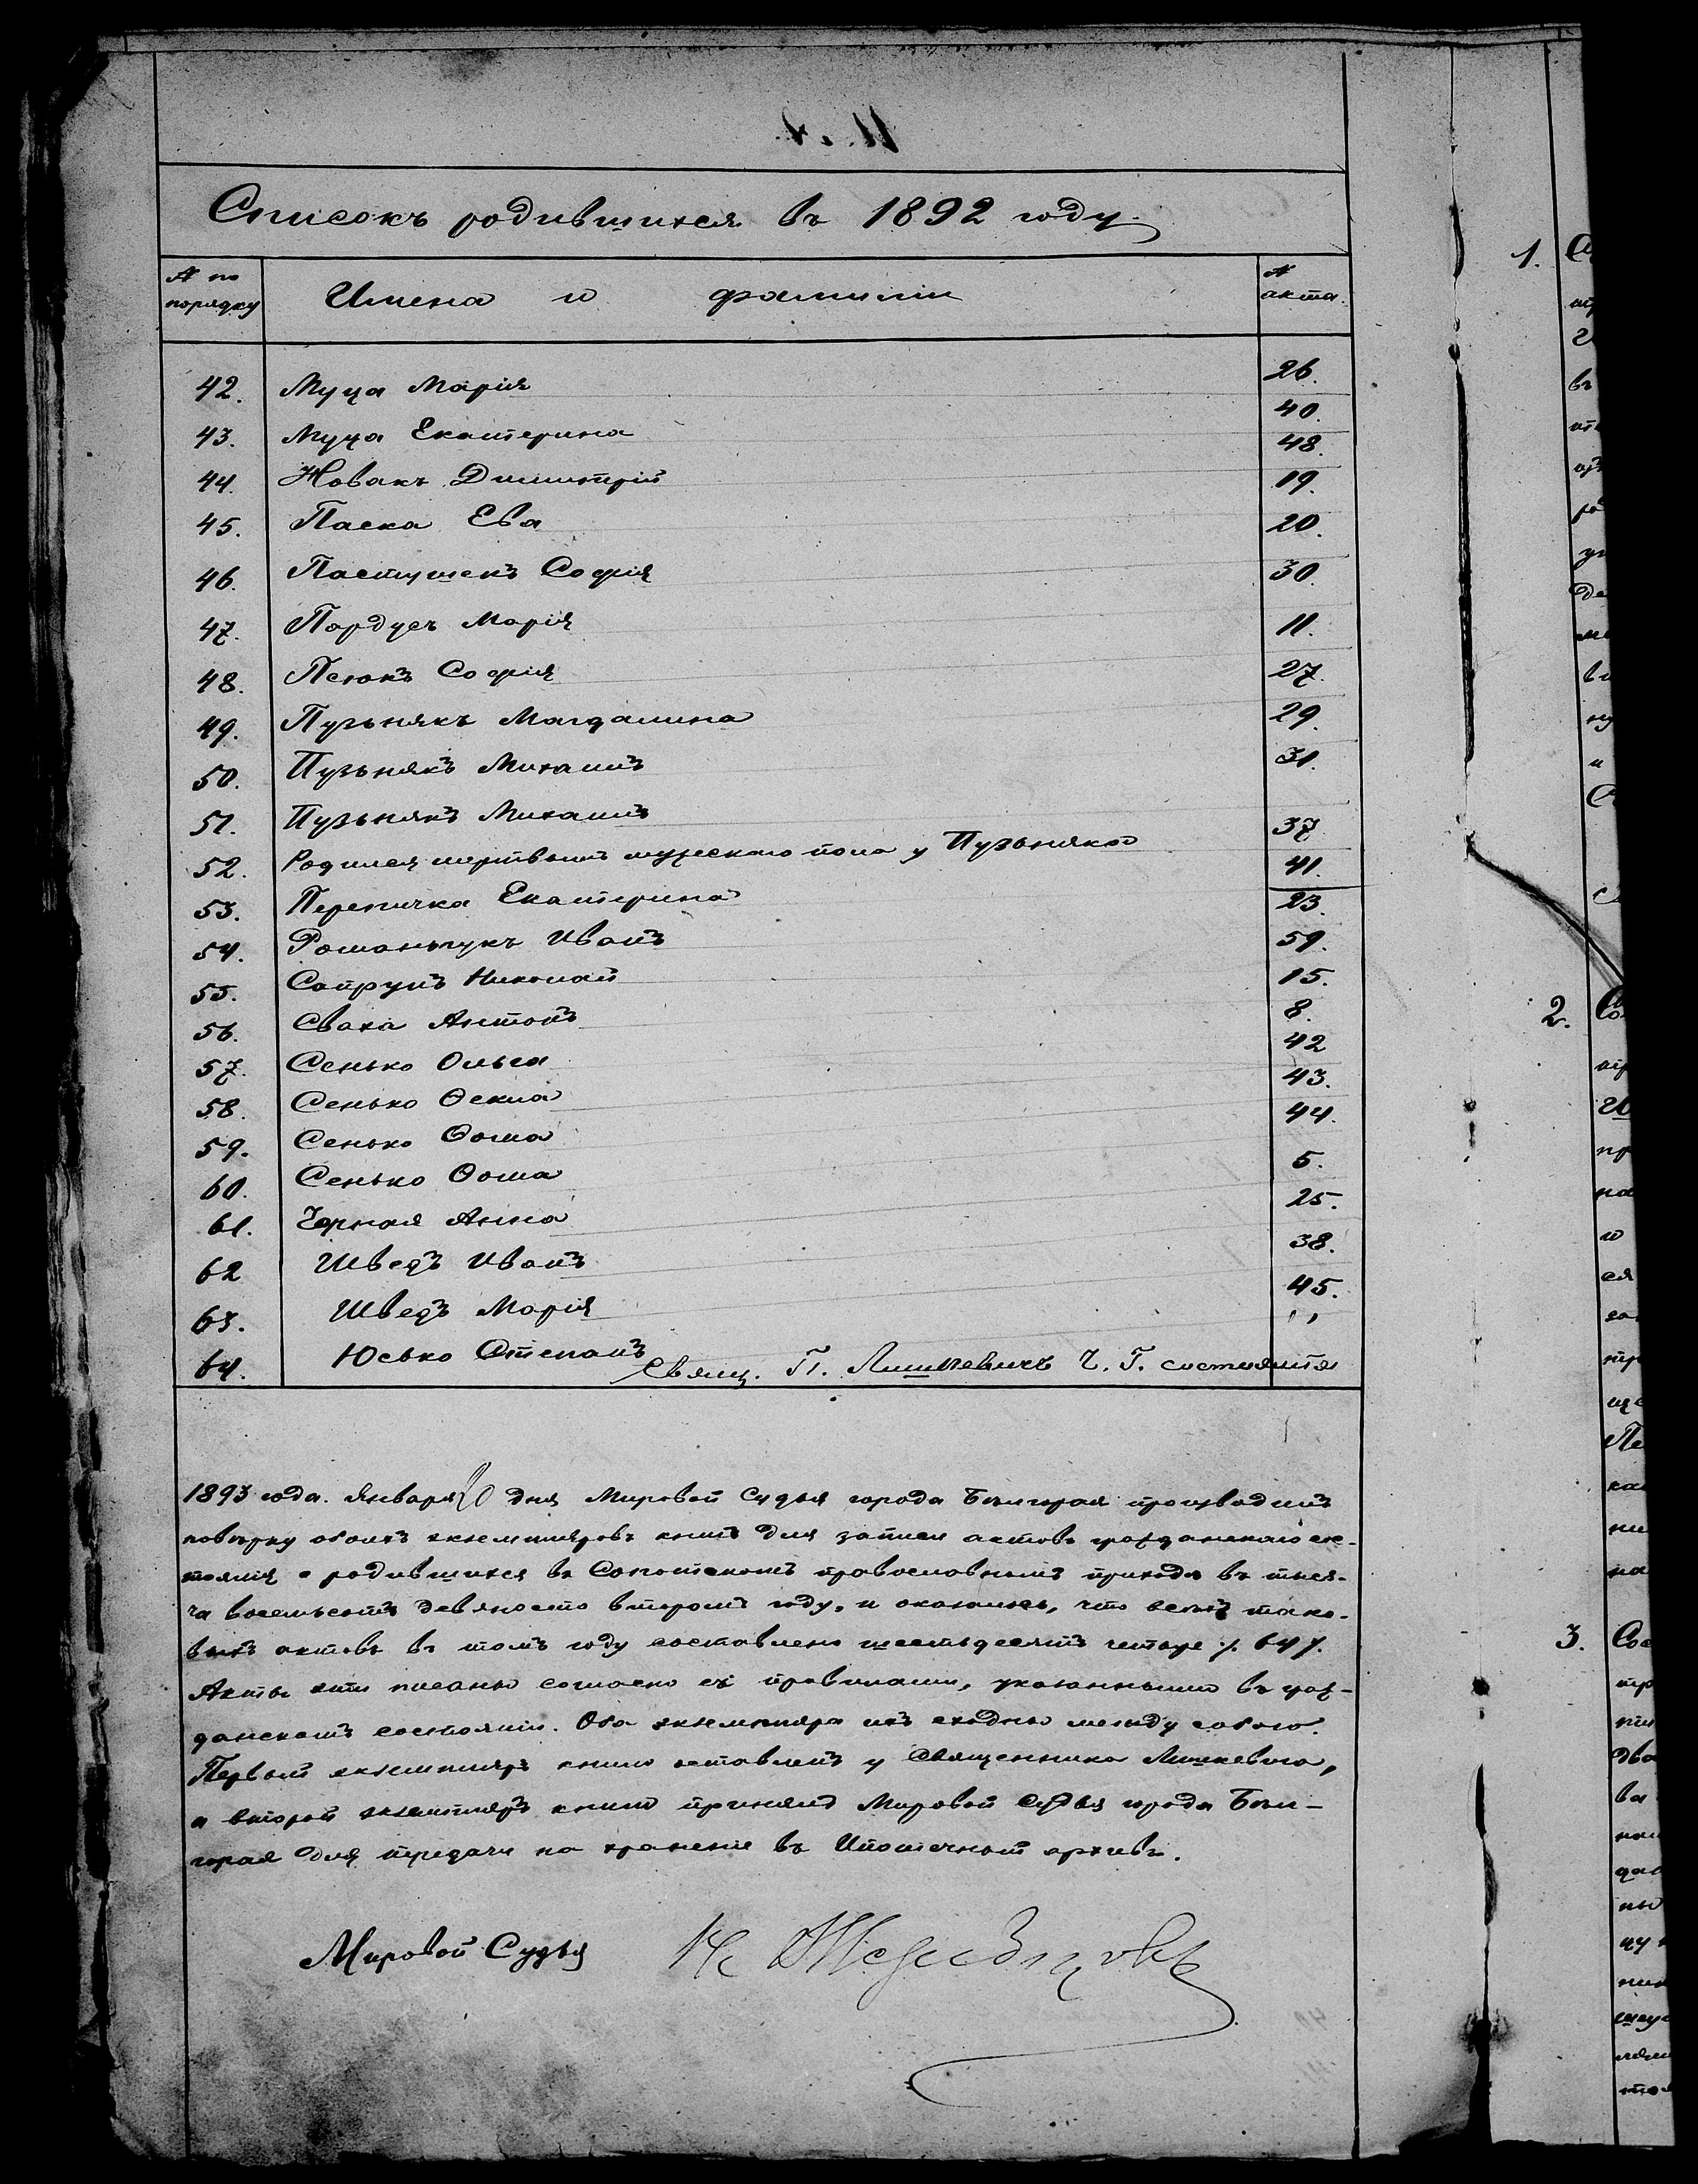 Списокъ родившихся въ 1892 году
№ по порядку Имена и фамиліи № акта.
42. Муца Марія 26.
43. Муца Екатерина 40.
44. Новакъ Димитрій 48.
45. Паска Ева 19.
46. Пастушекъ Софія 20.
47. Пардусъ Марія 30.
48. Псюкъ Софія 11.
49. Пузьнякъ Магдалина 27.
50. Пузьнякъ Михаилъ 29.
51. Пузьнякъ Михаилъ 31.
52. Родился мертвымъ мужескаго пола у Пузьняка 37
53. Перепичка Екатерина 41.
54. Романьчукъ Иванъ 23.
55. Сапрунъ Николай 59.
56. Сваха Антонъ 15.
57. Сенько Ольга 8.
58. Сенько Ѳекла 42
59. Сенько Ѳома 43.
60. Сенько Ѳома 44.
61. Чорная Анна 5.
62 Шведъ Иванъ 25.
63. Шведъ Марія 38.
64. Юсько Степанъ 45.
Свящ. П. Лишкевичъ Ч. Г. состоянія
1893 года. Января 20 дня Мировой Судья города Бѣлгорая производилъ
повѣрку обоихъ экземпляровъ книгъ для записи актовъ гражданскаго со-
стоянія о родившихся въ Сопотскомъ православномъ приходѣ въ тыся-
ча восемьсотъ девяносто второмъ году, и оказалось, что всѣхъ тако-
выхъ актовъ въ томъ году составлено шестьдесятъ четыре /. 64 /.
Акты эти писаны согласно съ правилами, указанными въ граж-
данскомъ состояніи. Оба экземпляра ихъ сходны между собою.
Первый экземпляръ книги оставленъ у Священника Лишкевича,
а второй экземпляръ книги принялъ Мировой Судья города Бѣл-
горая для передачи на храненіе въ Ипотечный архивъ.
Мировой Судья
1.
2.
3.